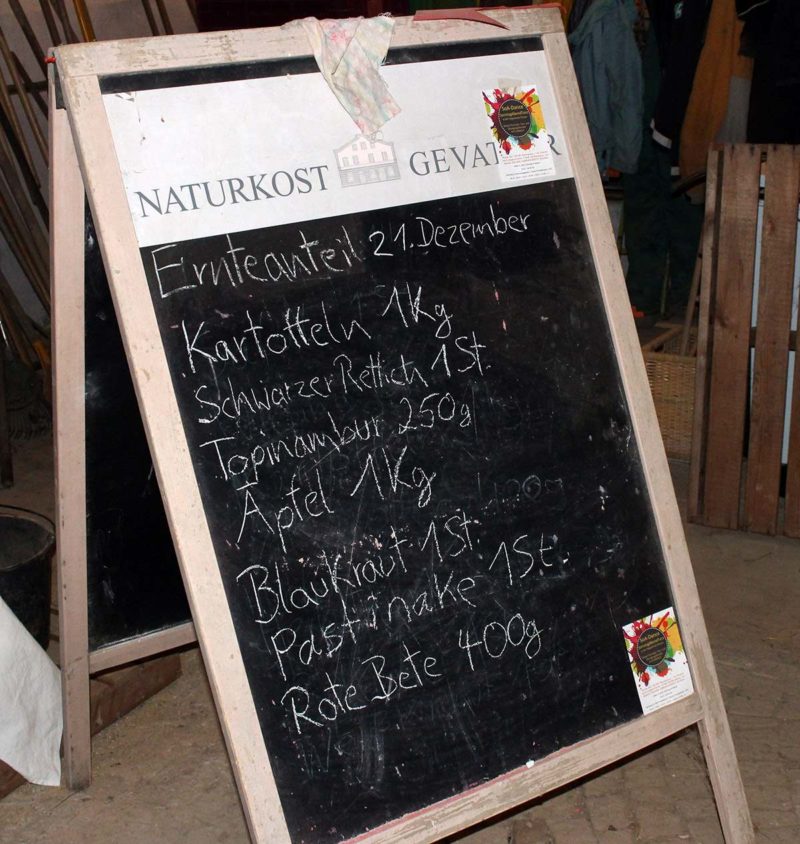 NATURKOST GEVAT
Ernteanteil 21. Dezember
Kartoffeln 1Kg
Schwarzer Rettich 1St.
Topinambur 250g
Äpfel 1Kg
Blaukraut 1St.
Pastinake 1St.
Rote Bete 400g